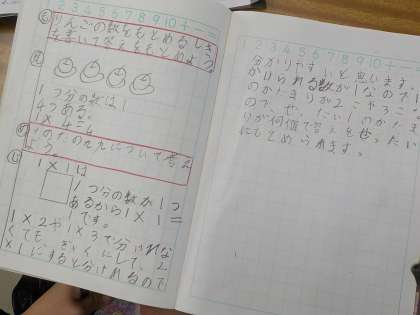 2 3 4 5 6 7 8 9 10 + - =
りんごの数をもとめるしき
を書いて答えをもとめよう。
1つ分の数は1
4つある。
1×4=4
1のだんの九九について考え
よう。
1×1は
1つ分の数が1つ
あるから1×1=
1です。
1×2や1×3で分けれな
くても、ぎゃくにして、2
×1にすると分けれるので
1 2 3 4 5 6 7 8 9 10 + - =
分かりやすいと思います。
かけられる数が1なので1
のかたまりが2こや3こな
ので、ぜったい1のかたま
りが何個で答えをぜったい
にもとめられます。